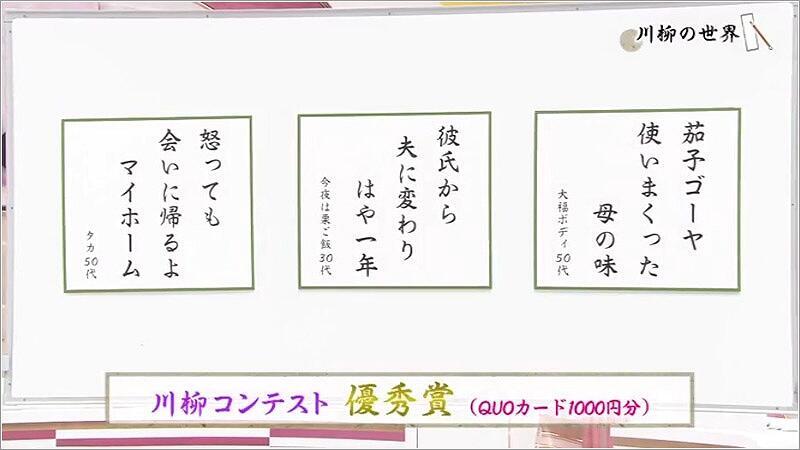 川柳の世界
茄子ゴーヤ
使いまくった
母の味
大福ボディ50代
彼氏から
夫に変わり
はや一年
今夜は栗ご飯30代
怒っても
会いに帰るよ
マイホーム
タカ50代
川柳コンテスト 優秀賞 (QUOカード1000円分)